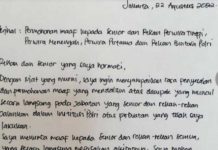 Jakarta, 22 Agustus 2022
Perihal : Permohonan maaf kepada Senior dan Rekan Perwira Tinggi,
Perwira Menengah, Perwira Pertama dan Rekan Bintara Polri
Rekan dan Senior yang saya hormati,
Dengan niat yang murni, saya ingin menyampaikan rasa penyesalan
dan permohonan maaf mendalam atas dampak yang muncul
secara langsung pada jabatan yang senior dan rekan-rekan
jalankan dalam institusi Polri atas perbuatan yang telah saya
lakukan.
Saya meminta maaf kepada senior dan rekan-rekan semua,
yang secara langsung